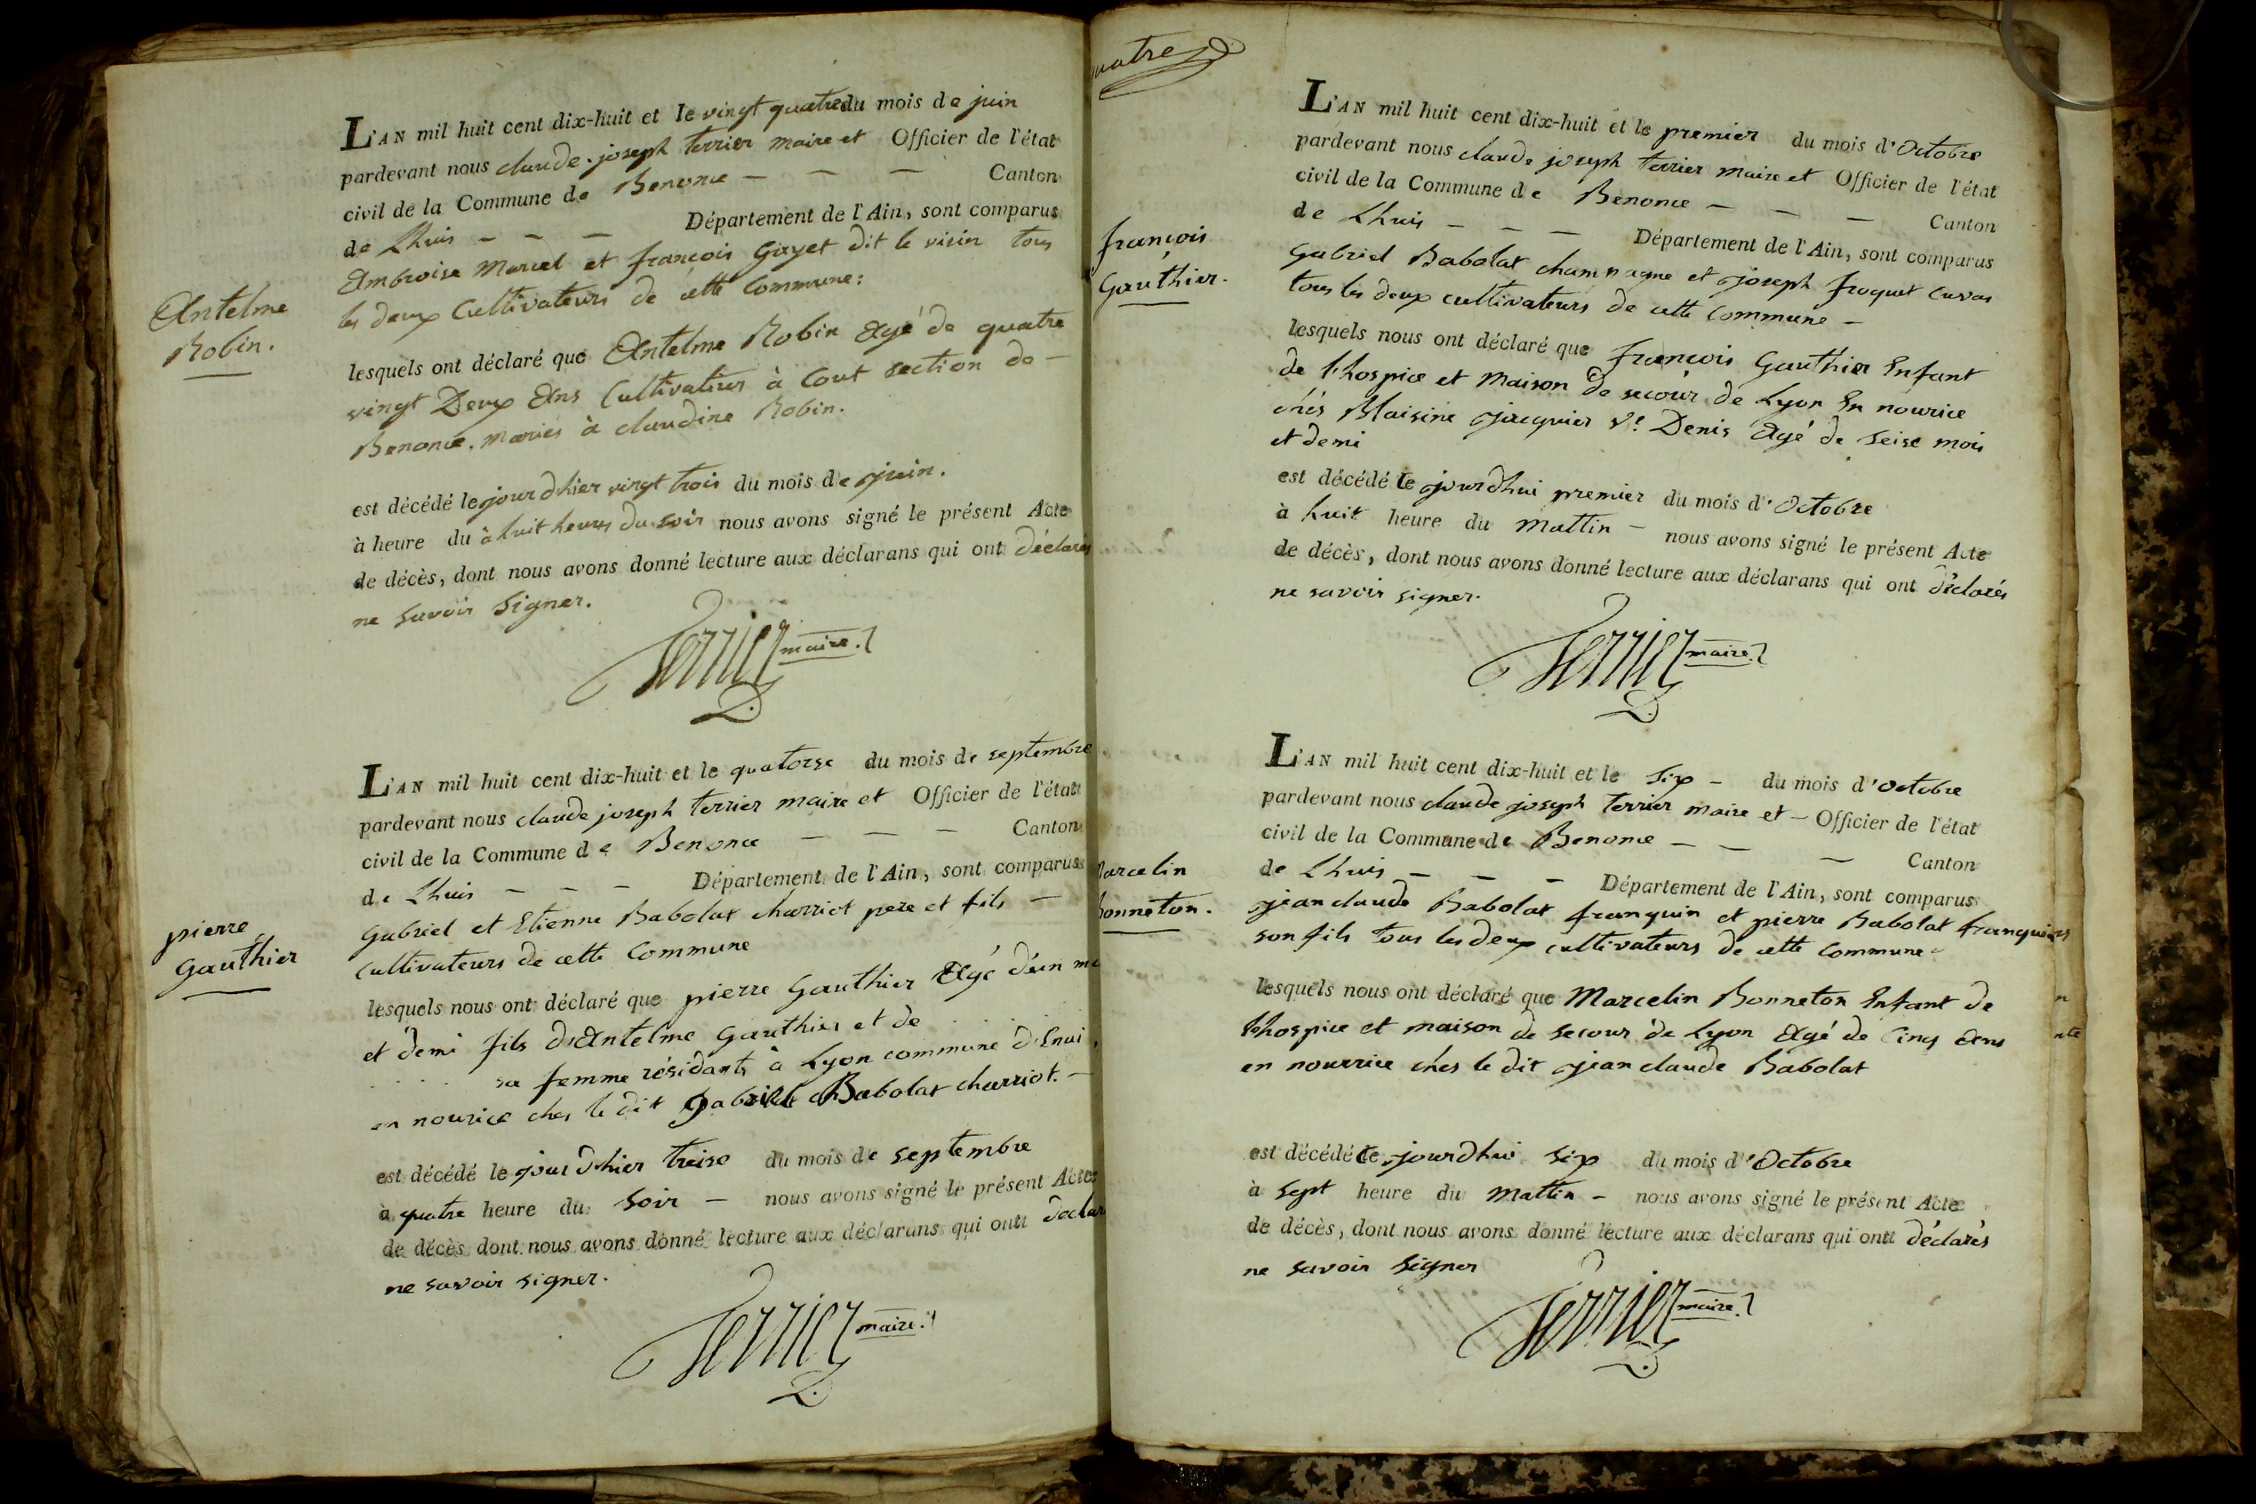 L'AN mil huit cent dix-huit et le vingt quatre du mois de juin
pardevant nous claude joseph terrier maire et Officier de l'état
civil de la Commune de Benonce — — — Canton
de Lhuis — — — Département de l'Ain, sont comparus
Ambroise Marcel et françois Gayet dit le visin tous
les deux Cultivateurs de cette Commune:
Antelme
Robin.
lesquels ont déclaré que Antelme Robin Agé de quatre
vingt Deux Ans Cultivateur à Cout section de —
Benonce. Mariés à claudine Robin.
est décédé le jour d'hier vingt trois du mois de juin.
à heure du à huit heures du soir nous avons signé le présent Acte
de décès, dont nous avons donné lecture aux déclarans qui ont déclarés
ne savoir signer.
Terrier maire.
L'AN mil huit cent dix-huit et le quatorse du mois de septembre
pardevant nous claude joseph terrier maire et Officier de l'état
civil de la Commune de Benonce — — — Canton
de Lhuis — — — Département de l'Ain, sont comparus
Gabriel et Etienne Babolat charriot pere et fils —
Cultivateurs de cette Commune
pierre
Gauthier
lesquels nous ont déclaré que pierre Gauthier Agé d'un
et demi fils d'Antelme Gauthier et de . . . .
. . . . sa femme résidants à Lyon commune
en nourice ches le dit Gabriel Babolat charriot. —
est décédé le jour d'hier treise du mois de septembre
à quatre heure du soir — nous avons signé le présent Acte
de décès dont nous avons donné lecture aux déclarans qui ont
ne savoir signer.
Terrier maire.
quatre
L'AN mil huit cent dix-huit et le premier du mois d'Octobre
pardevant nous claude joseph terrier maire et Officier de l'état
civil de la Commune de Benonce — — — Canton
de Lhuis — — — Département de l'Ain, sont comparus
Gabriel Babolat champagne et joseph froquet cuvas
tous les deux cultivateurs de cette Commune —
françois
Gauthier.
lesquels nous ont déclaré que françois Gauthier Enfant
de l'hospice et Maison de secour de Lyon En nourice
chés Blaisine jacquier St Denis Agé de seise mois
et demi
est décédé le jourdhui premier du mois d'Octobre
à huit heure du Mattin — nous avons signé le présent Acte
de décès, dont nous avons donné lecture aux déclarans qui ont déclarés
ne savoir signer.
Terrier maire.
L'AN mil huit cent dix-huit et le six — du mois d'octobre
pardevant nous claude joseph terrier maire et — Officier de l'état
civil de la Commune de Benonce — — — Canton
de Lhuis — — — Département de l'Ain, sont comparus
jean claude Babolat franquin et pierre Babolat franquin
son fils tous les deux cultivateurs de cette Commune
Marcelin
Bonneton.
lesquels nous ont déclaré que Marcelin Bonneton Enfant de
l'hospice et maison de secour de Lyon Agé de Cinq Ans
en nourrice ches le dit jean claude Babolat
est décédé le jourdhui six du mois d'Octobre
à sept heure du Mattin — nous avons signé le présent Acte
de décès, dont nous avons donné lecture aux déclarans qui ont déclarés
ne savoir signer
Terrier maire.